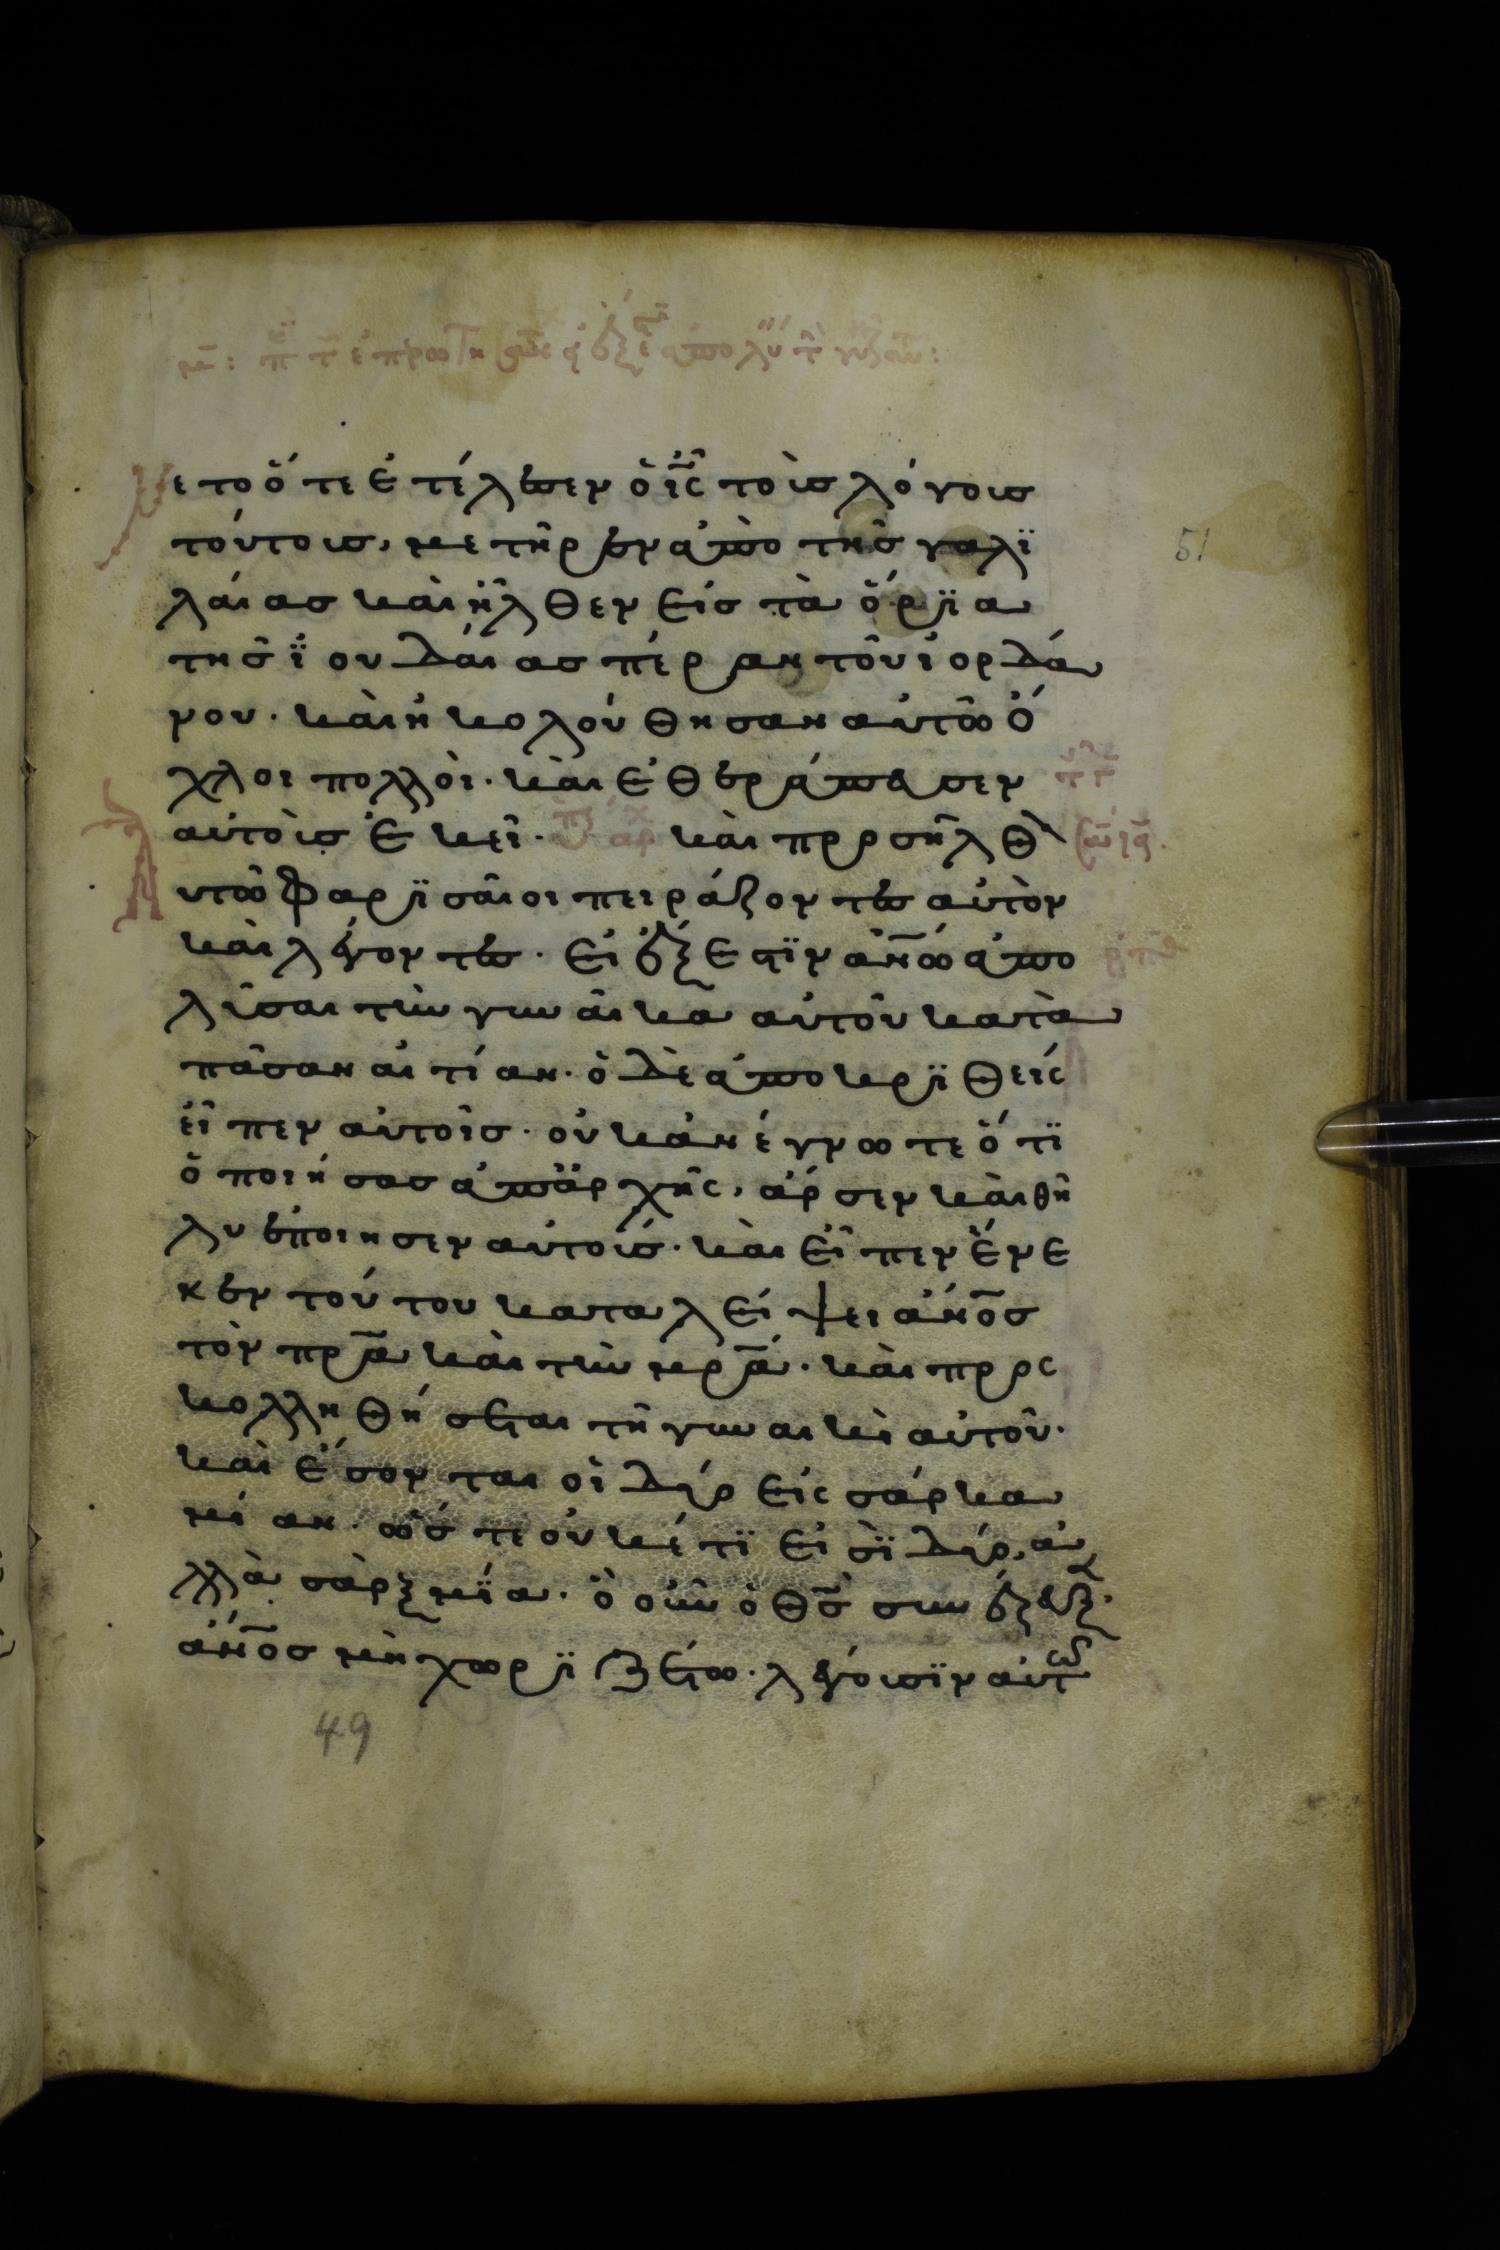 ετο ὅτε ἐτέλεσεν ὁ ις τοὶς λόγοις
τούτοις, μετῆρεν ἀπὸ τῆς γαλϊ
λάιας και ἦλθεν εἰς τὰ ὅρϊα
της ἰουδάιας πέραν τοῦ ἰορδά
νου · και ἠκολούθησαν αὐτῶ ὄ
χλοι πολλοὶ · και ἐθεράπευσεν
αὐτοὶς ἐκεῖ · και προσῆλθον ἀ
υτῶ φαρϊσαῖοι πειράζοντες αὐτὸν
και λέγοντες · εἰ ἔξεστϊν ανω ἀπο
λῦσαι τὴν γυναῖκα αὐτοῦ κατὰ
πᾶσαν αἰτίαν · ὁ δὲ ἀποκρϊθεὶς
εἶπεν αὐτοῖς · οὐκ ἀνέγνωτε ὅτϊ
ὁ ποιήσας ἀπαρχῆς, ἄρσεν και θῆ
λυ ἐποίησεν αὐτοὺς · και εἶπεν ἕνε
κεν τούτου καταλείψει ανος
τὸν πρα και τὴν μρα · και προς
κολληθήσεται τῆ γυναικὶ αὐτοῦ ·
και ἔσονται οἱ δύο εἰς σάρκα
μίαν · ὥστε οὐκέτϊ εἰσϊ δύο, ἀ
λλὰ σὰρξ μία · ὃ οὖν ὁ θς συνέζευξεν ·
ανος μὴ χωρϊζέτω · λέγουσϊν αὐτῶ
51
49